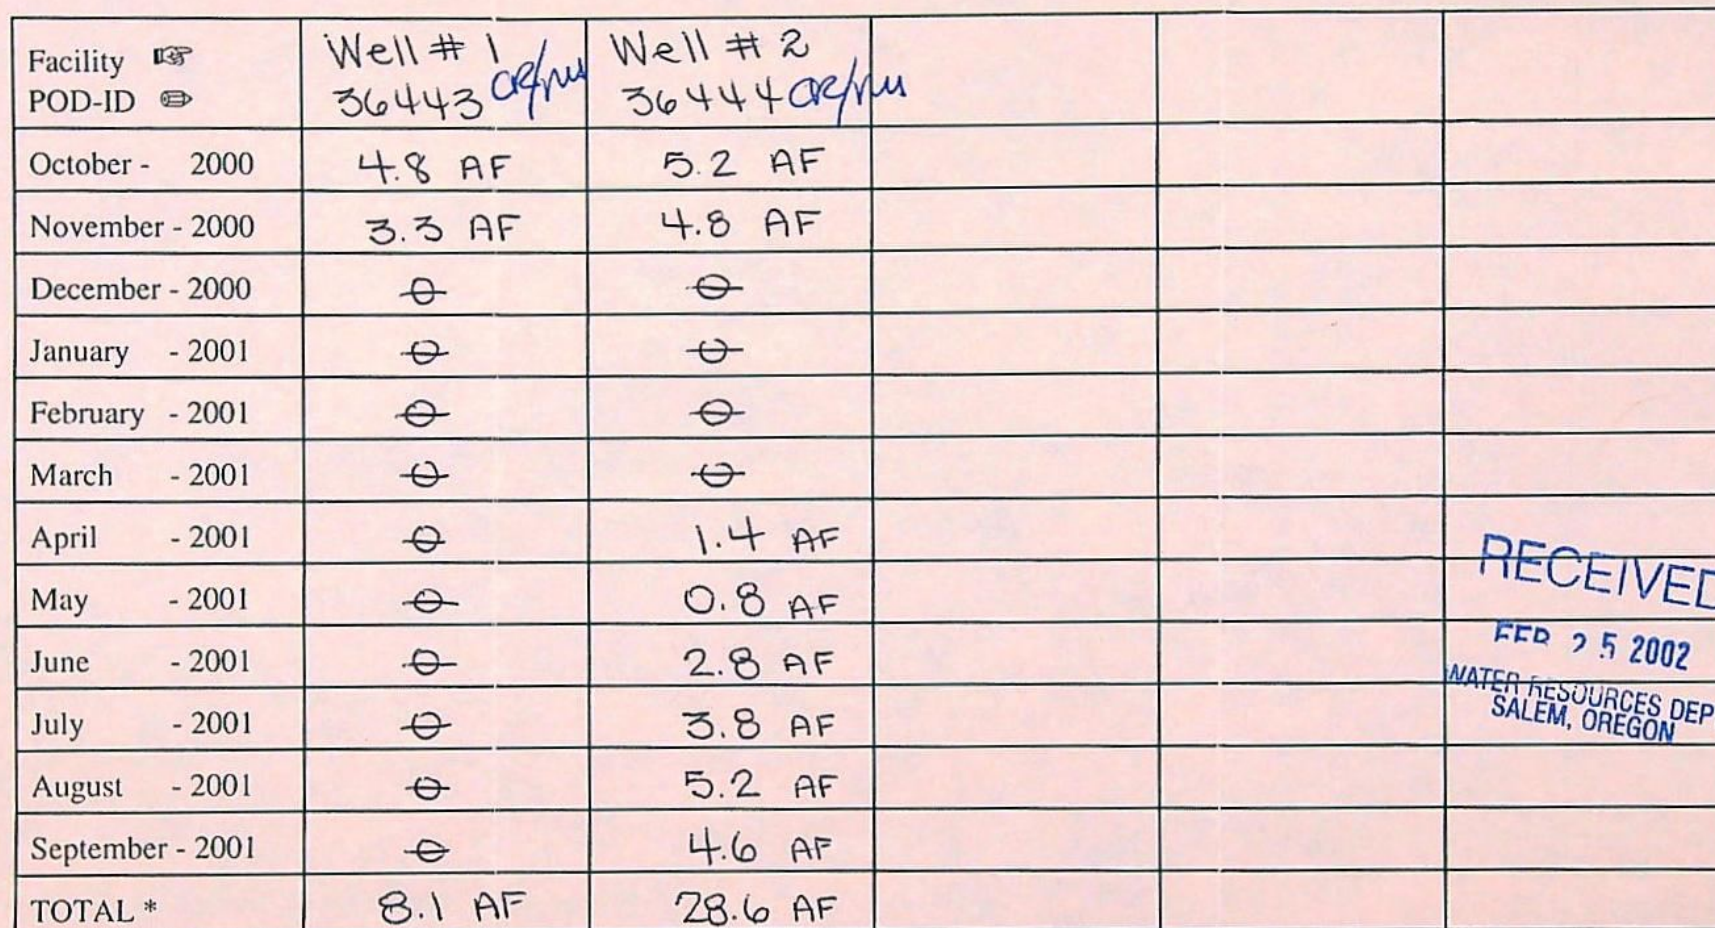 Facility ☞ Well # 1 Well # 2
POD-ID ✏ 36443 36444
October - 2000 4.8 AF 5.2 AF
November - 2000 3.3 AF 4.8 AF
December - 2000 0 0
January - 2001 0 0
February - 2001 0 0
March - 2001 0 0
April - 2001 0 1.4 AF
May - 2001 0 0.8 AF
June - 2001 0 2.8 AF
July - 2001 0 3.8 AF
August - 2001 0 5.2 AF
September - 2001 0 4.6 AF
TOTAL * 8.1 AF 28.6 AF
RECEIVED
FEB 25 2002
WATER RESOURCES DEP
SALEM, OREGON